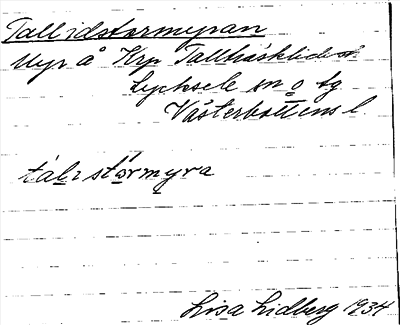 Tallidstormyran
Myr å Krp Tallträsklid
Lycksele sn o tg
Västerbottens l.
tálistórmyra
Lisa Lidberg 1934